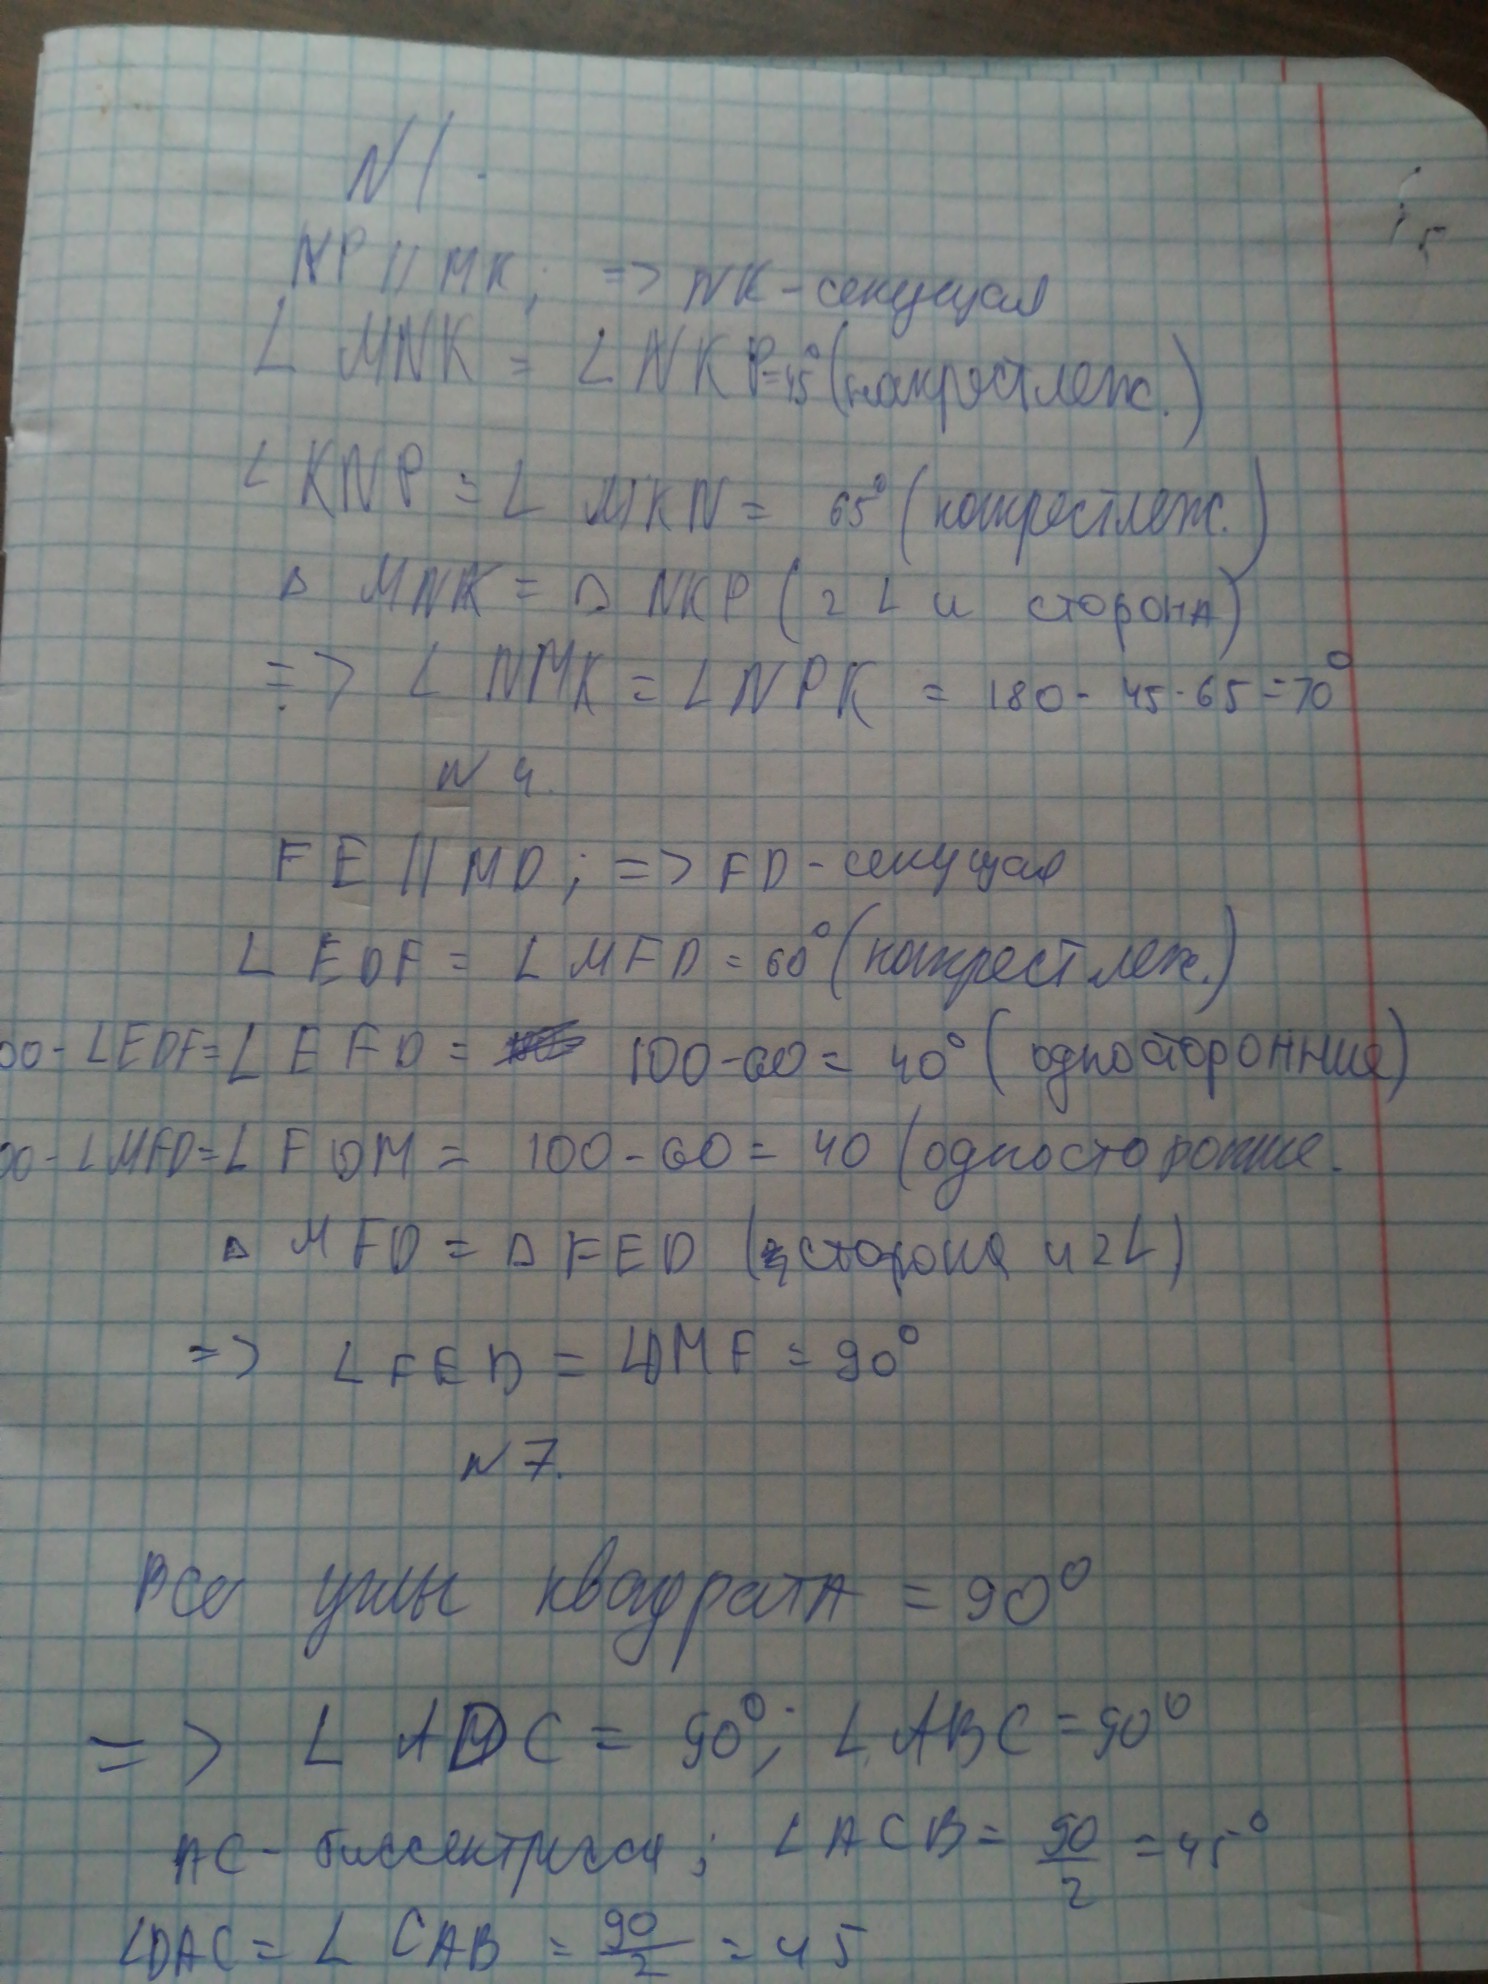 N1.
NP || MK; => NK - секущая
∠ MNK = ∠ NKP=45° (накрестлеж.)
∠ KNP = ∠ MKN = 65° (накрестлеж.)
Δ MNK = Δ NKP (2 ∠ и сторона)
=> ∠ NMK = ∠ NPK = 180 - 45 - 65 = 70°
N 4.
FE || MD; => FD - секущая
∠ EDF = ∠ MFD = 60° (накрестлеж.)
00 - ∠EDF = ∠ EFD = 100 - 60 = 40° (односторонние)
00 - ∠MFD = ∠ FDM = 100 - 60 = 40 (односторонние.
Δ MFD = Δ FED (сторона и 2∠)
=> ∠ FED = ∠DMF = 90°
N 7.
Все углы квадрата = 90°
=> ∠ ADC = 90°; ∠ ABC = 90°
AC - биссектрисса; ∠ ACB = 90/2 = 45°
∠DAC = ∠ CAB = 90/2 = 45